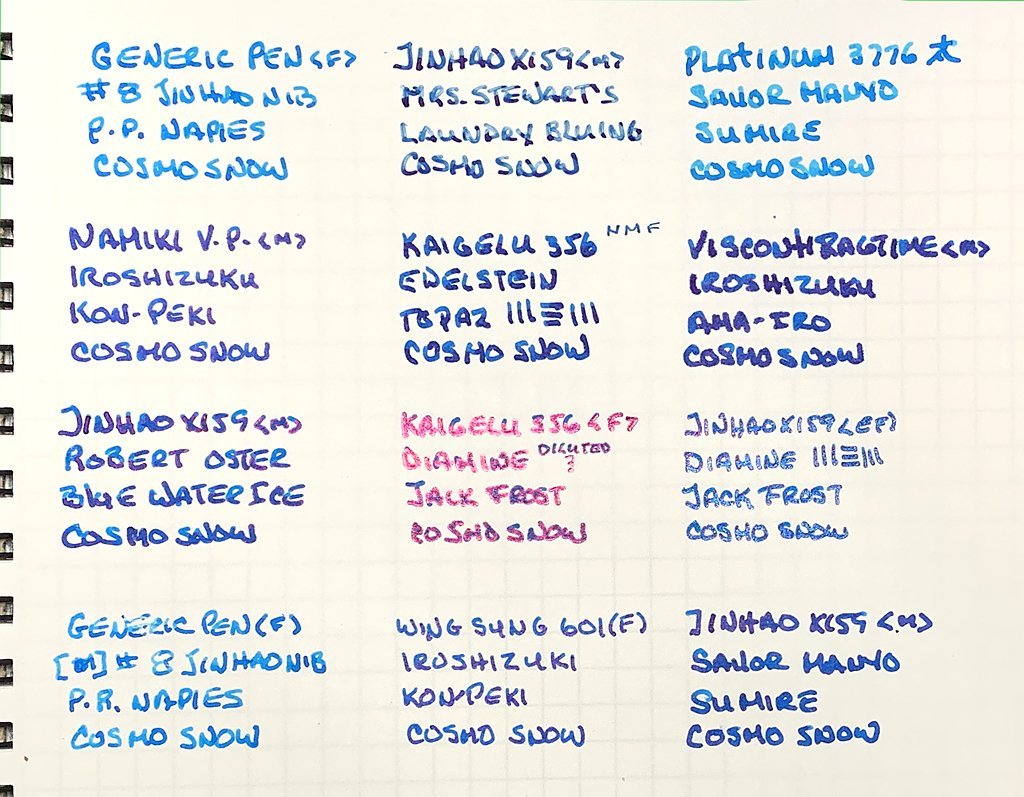 GENERIC PEN <F>
# 8 JINHAO NIB
P.P. NAPLES
COSMO SNOW
JINHAO X159 <M>
MRS. STEWART'S
LAUNDRY BLUING
COSMO SNOW
PLATINUM 3776 太
SAILOR MANYO
SUMIRE
COSMO SNOW
NAMIKI V.P. <M>
IROSHIZUKU
KON-PEKI
COSMO SNOW
KAIGELU 356 NMF
EDELSTEIN
TOPAZ |||☰|||
COSMO SNOW
VISCONTI RAGTIME <M>
IROSHIZUKU
AMA-IRO
COSMO SNOW
JINHAO X159 <M>
ROBERT OSTER
BLUE WATER ICE
COSMO SNOW
KAIGELU 356 <F>
DIAMINE DILUTED ?
JACK FROST
COSMO SNOW
JINHAO X159 <EF>
DIAMINE |||☰|||
JACK FROST
COSMO SNOW
GENERIC PEN (F)
[M] # 8 JINHAO NIB
P.R. NAPLES
COSMO SNOW
WING SUNG 601 (F)
IROSHIZUKI
KON-PEKI
COSMO SNOW
JINHAO X159 <M>
SAILOR MANYO
SUMIRE
COSMO SNOW